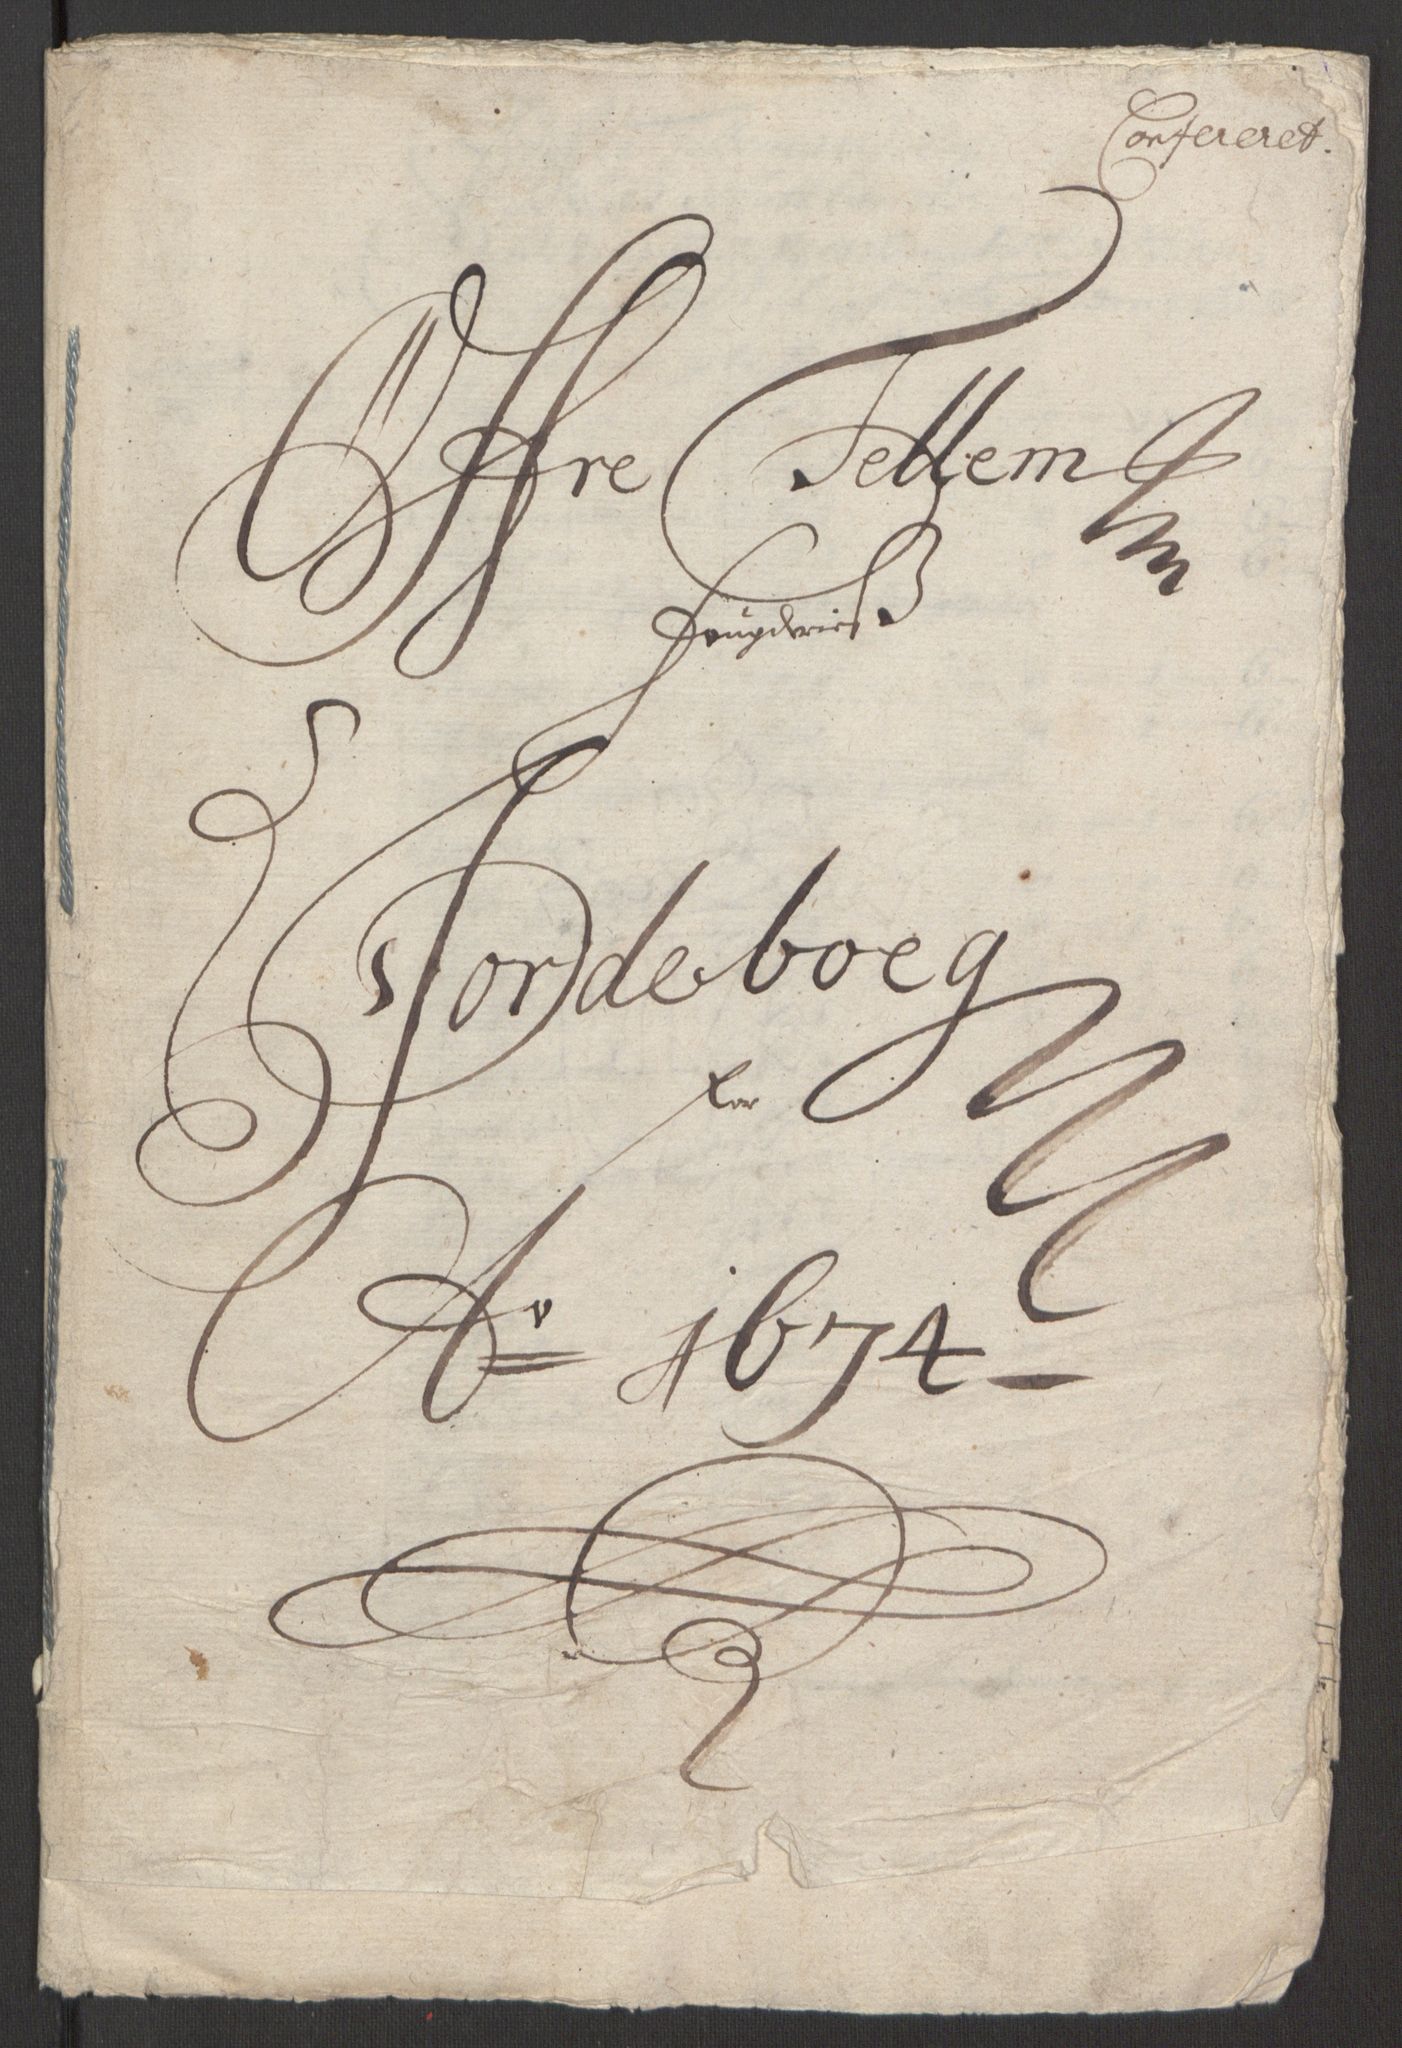 Confereret.
Øffre Tellem
fougderies
Jordeboeg
for
Ao 1674